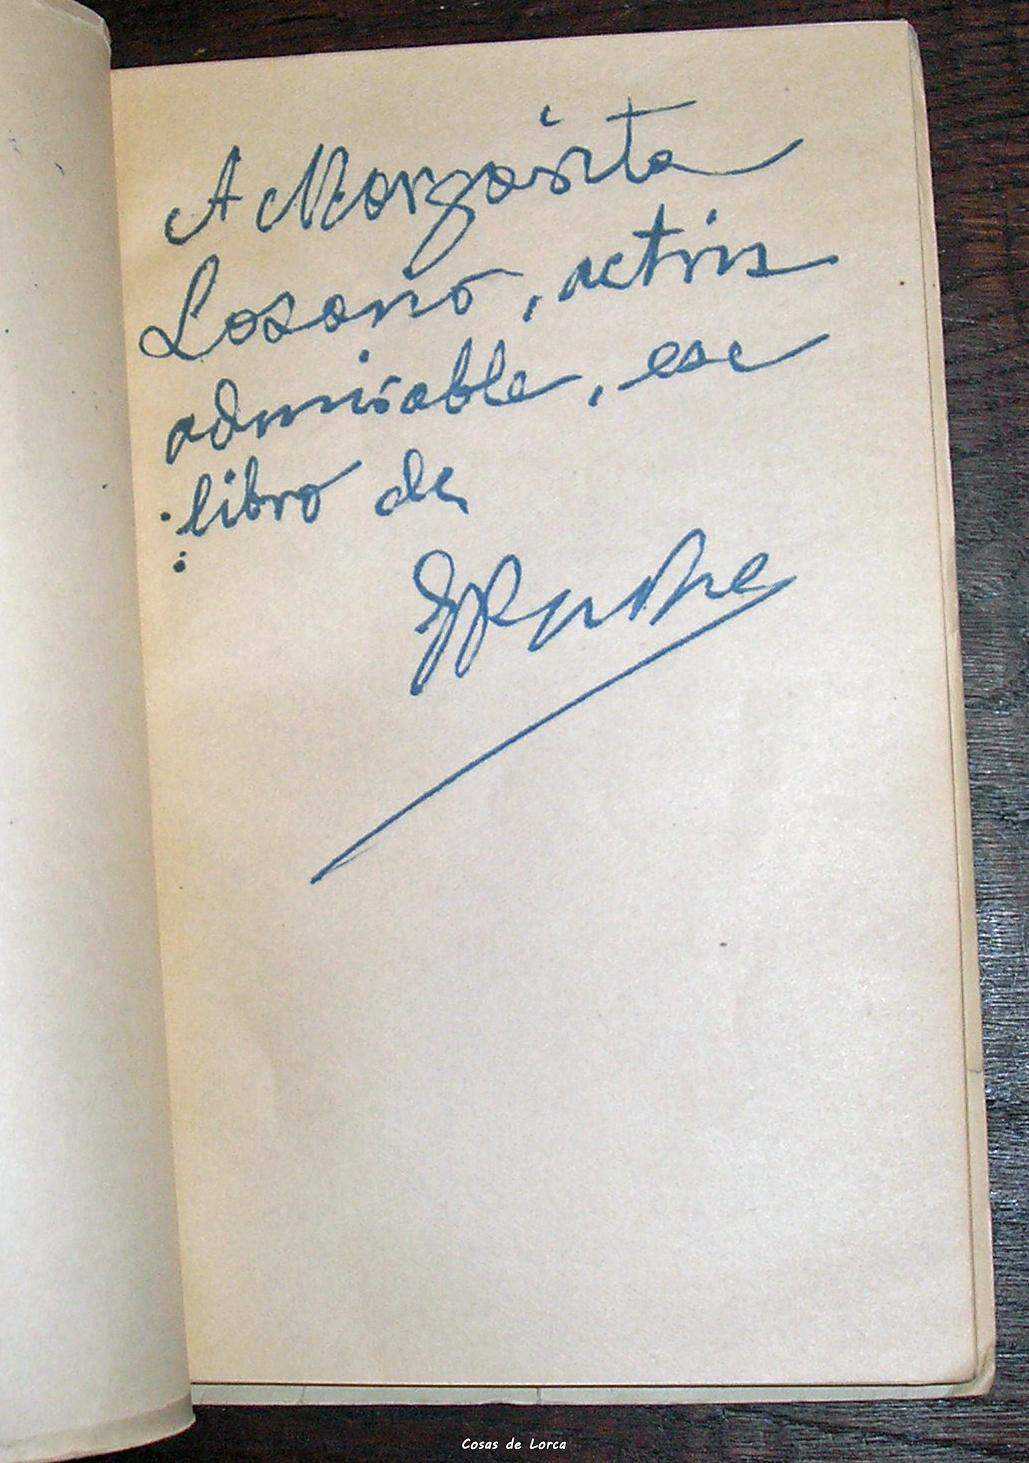 A Margarita
Lozano, actriz
admirable, ese
libro de
Cosas de Lorca